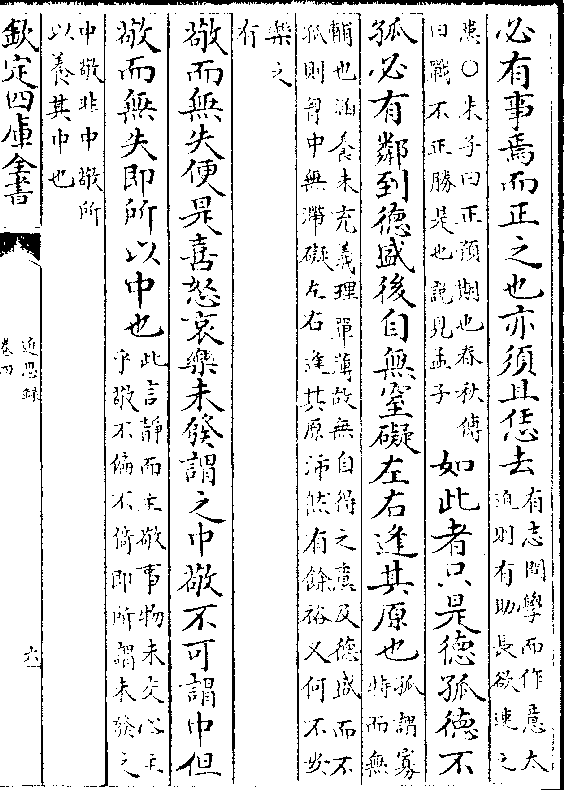 必有事焉而正之也亦須且恁去有志問學而作意太
迫則有助長欲速之
患○朱子曰正預期也春秋傳
曰戰不正勝是也說見孟子如此者只是德孤德不
孤必有鄰到德盛後自無窒礙左右逢其原也孤謂寡
特而無
輔也涵養未充義理單薄故無自得之意及德盛而不
孤則胷中無滯礙左右逢其原沛然有餘裕又何不安
樂之
有
敬而無失便是喜怒哀樂未發謂之中敬不可謂中但
敬而無失即所以中也此言靜而主敬事物未交心主
乎敬不偏不倚即所謂未發之
中敬非中敬所
以養其中也
欽定四庫全書
近思録
卷四
六